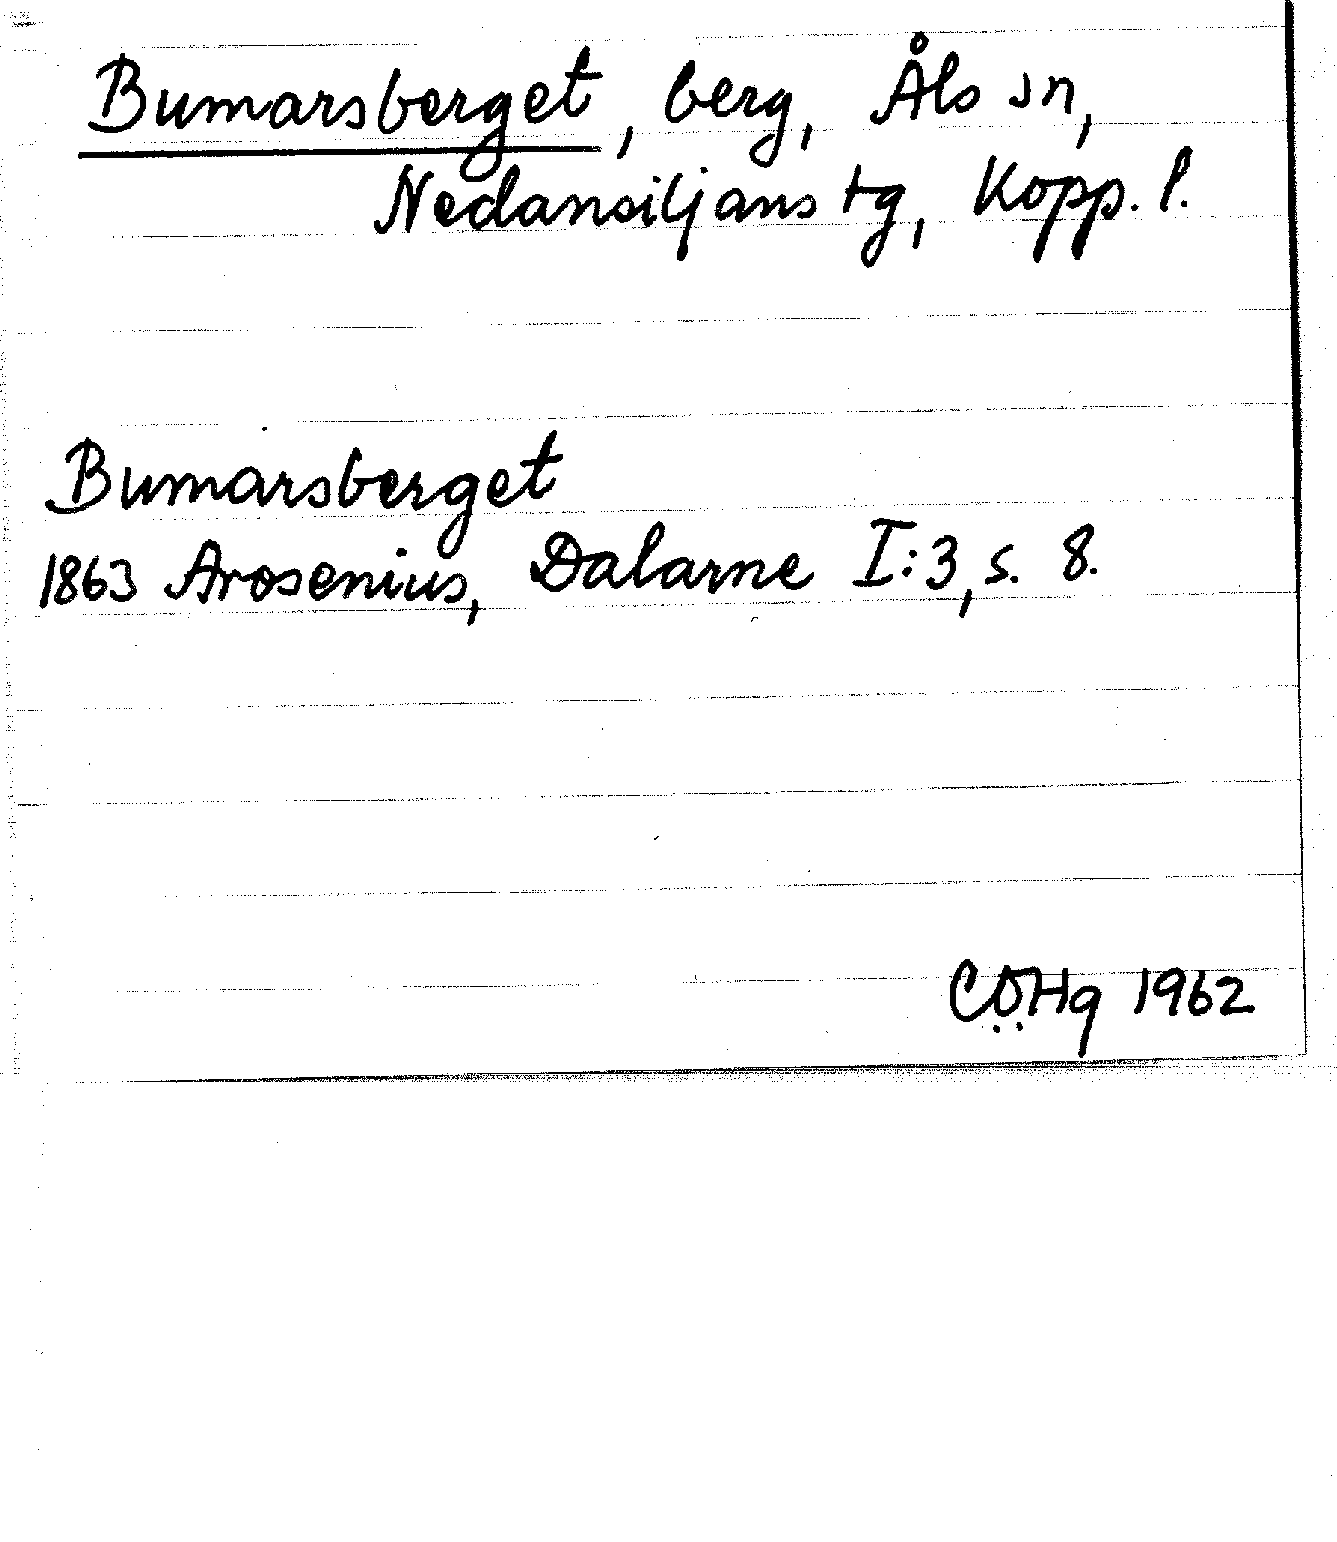 Bumarsberget, berg, Åls sn,
Nedansiljans tg, Kopp. l.
Bumarsberget
1863 Arosenius, Dalarne I:3, s. 8.
CÖHg 1962